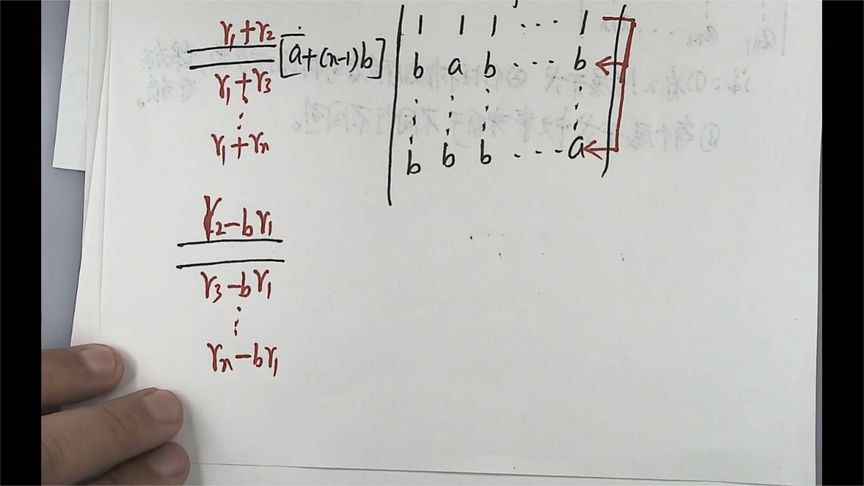 r₁+r₂
r₁+r₃
⋮
r₁+rₙ
[a+(n-1)b]
1 1 1 ⋯ 1
b a b ⋯ b
⋮ ⋮ ⋮ ⋮
b b b ⋯ a
r₂-br₁
r₃-br₁
⋮
rₙ-br₁